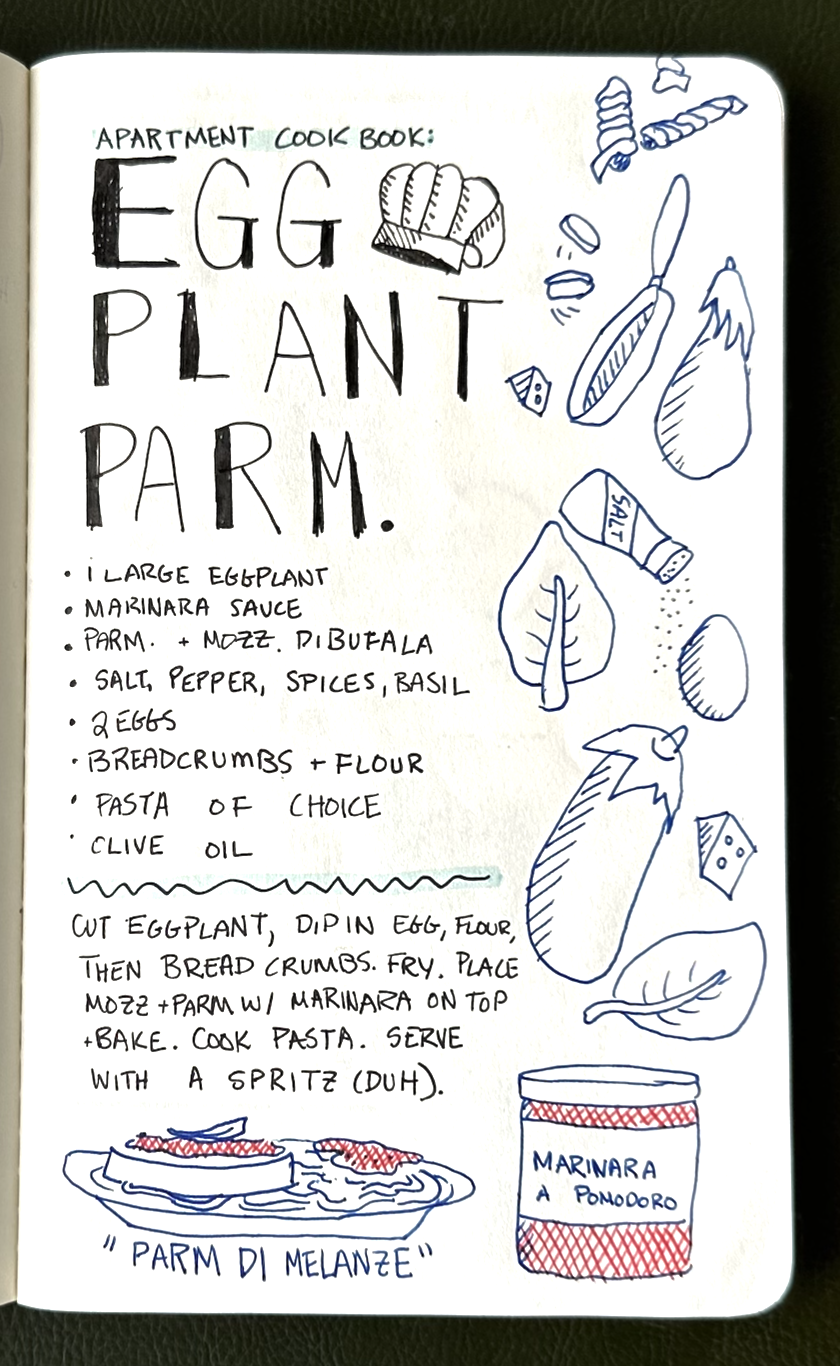 APARTMENT COOK BOOK:
EGG
PLANT
PARM.
• 1 LARGE EGGPLANT
• MARINARA SAUCE
• PARM. + MOZZ. DI BUFALA
• SALT, PEPPER, SPICES, BASIL
• 2 EGGS
• BREADCRUMBS + FLOUR
• PASTA OF CHOICE
• OLIVE OIL
CUT EGGPLANT, DIP IN EGG, FLOUR,
THEN BREAD CRUMBS. FRY. PLACE
MOZZ + PARM W/ MARINARA ON TOP
+ BAKE. COOK PASTA. SERVE
WITH A SPRITZ (DUH).
"PARM DI MELANZE"
SALT
MARINARA
A POMODORO